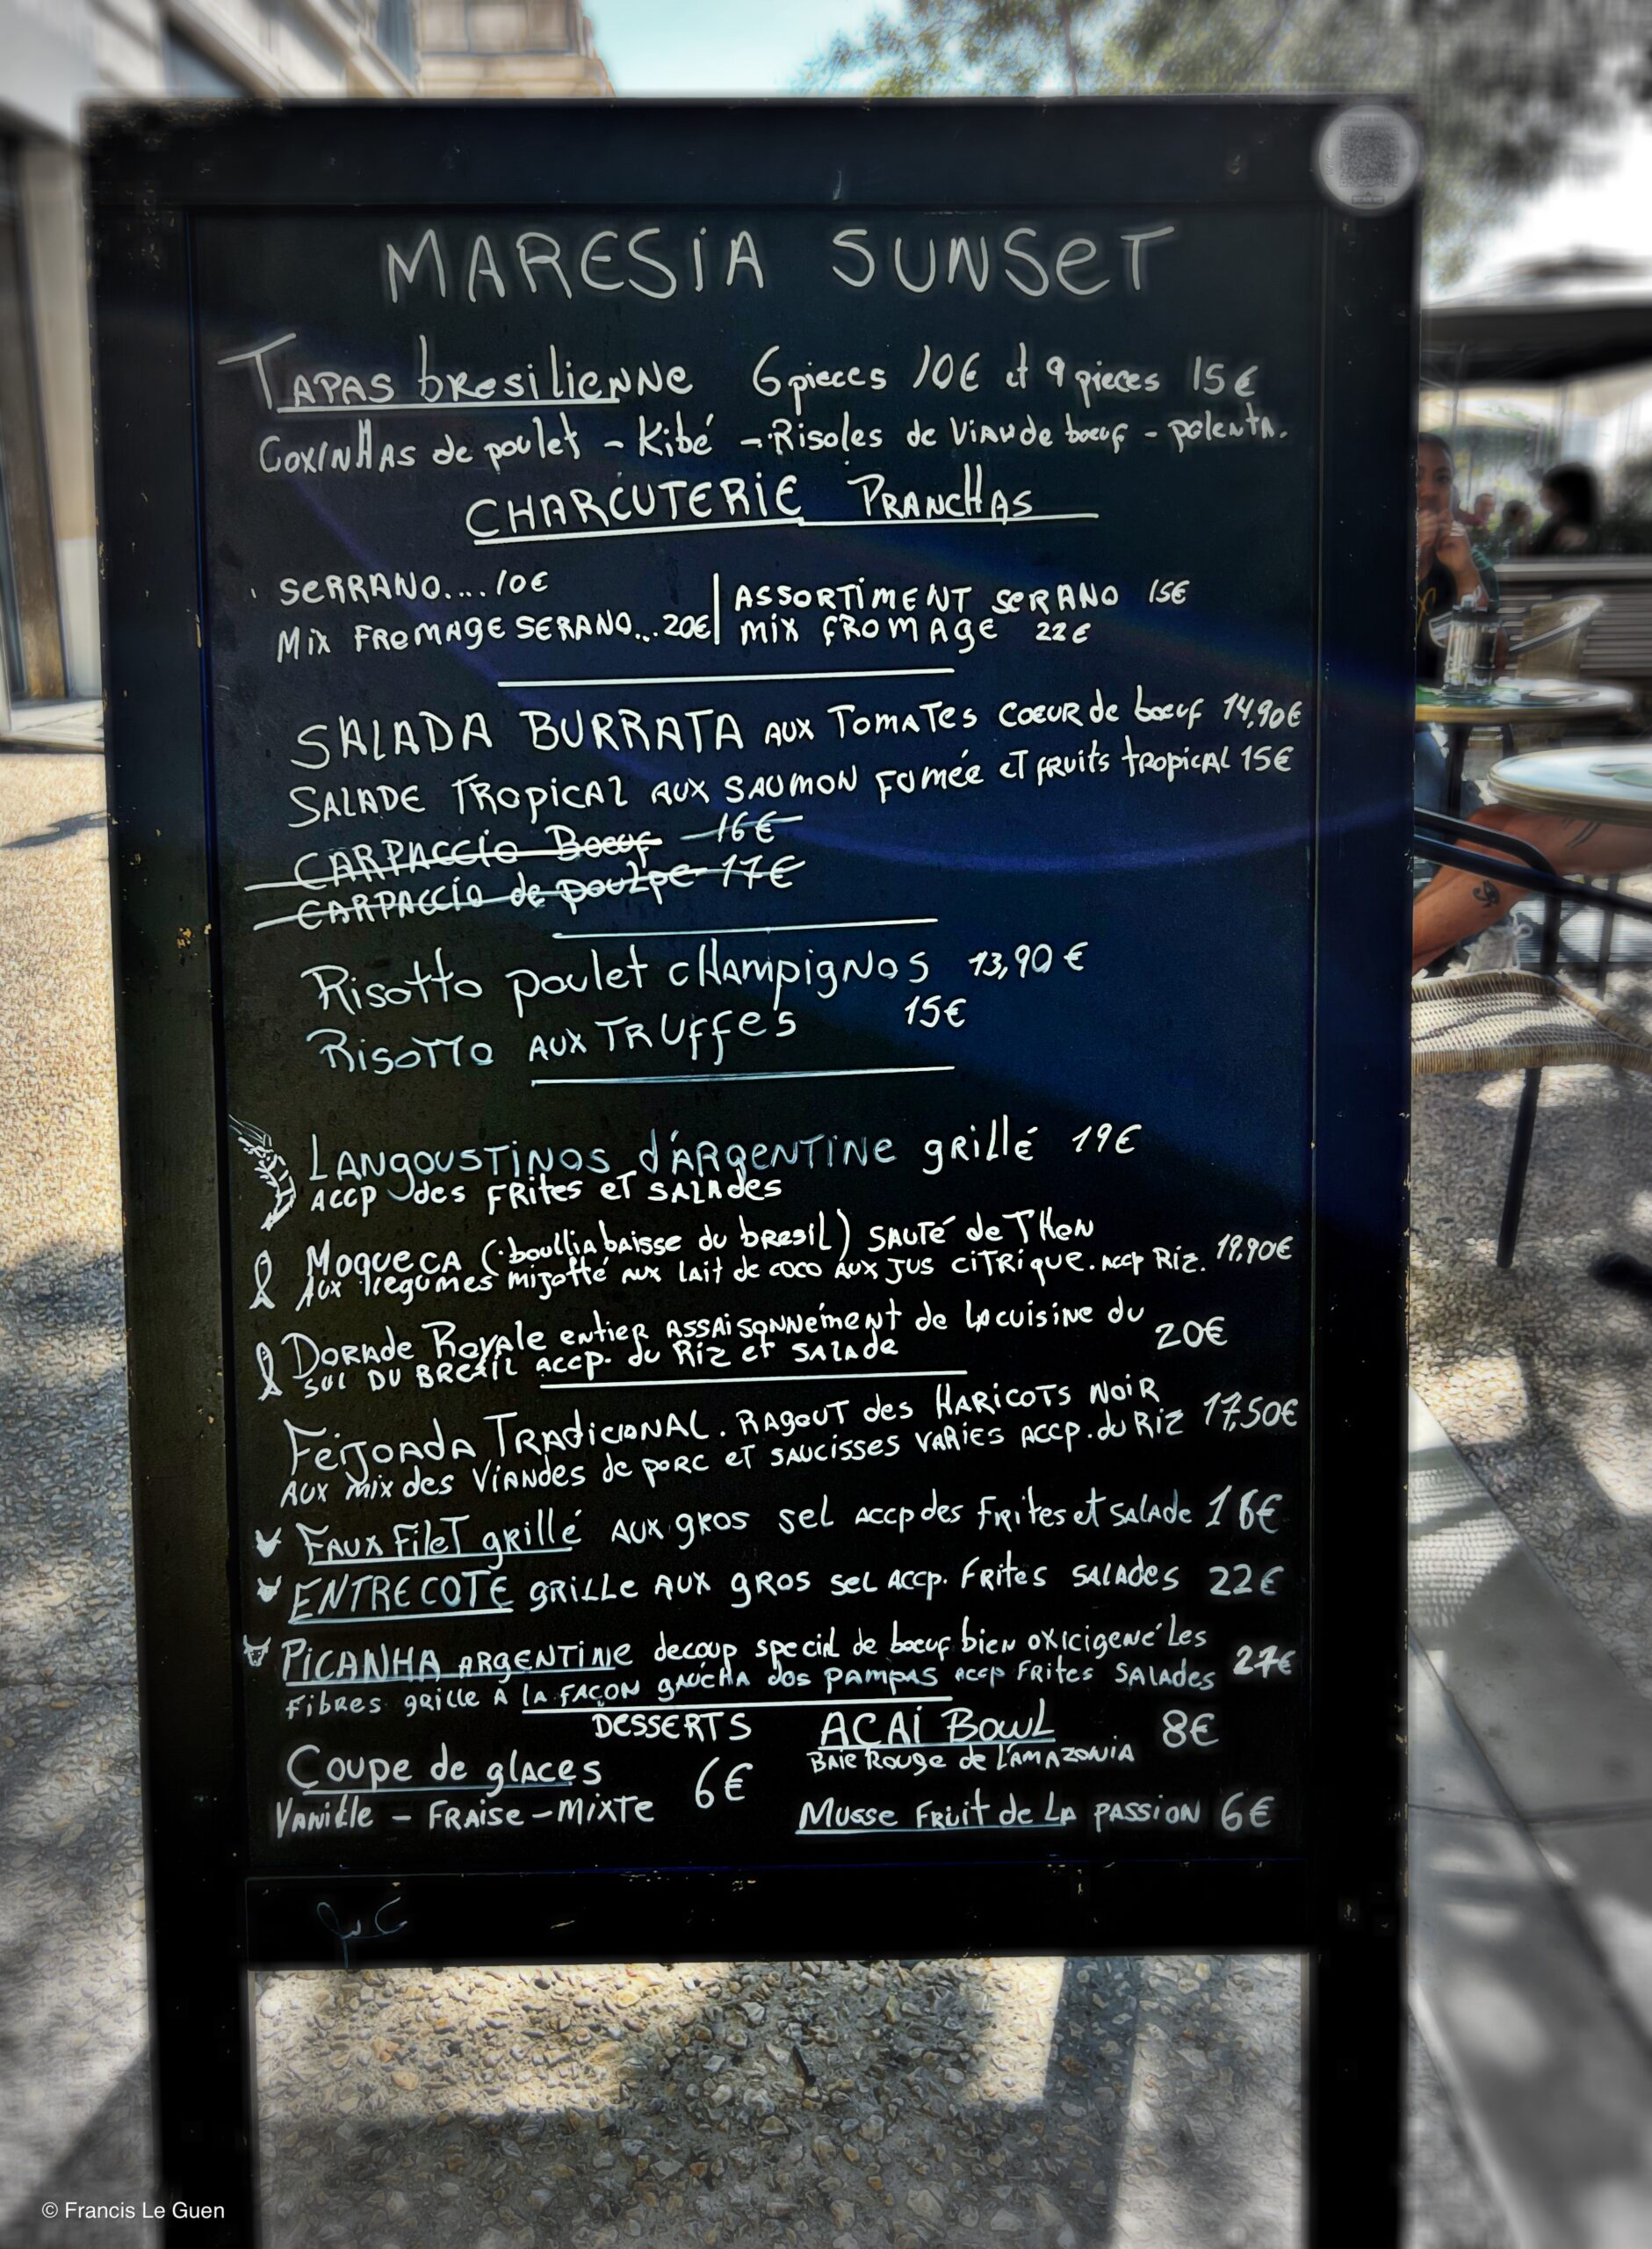 MARESIA SUNSET
TAPAS bresilienne 6 pieces 10€ et 9 pieces 15€
COXINHAS de poulet - Kibé - Risoles de Viande boeuf - polenta.
CHARCUTERIE PRANCHAS
SERRANO.... 10€
MIX FROMAGE SERANO... 20€
ASSORTIMENT SERANO 15€
MIX FROMAGE 22€
SALADA BURRATA AUX TOMATES COEUR de boeuf 14,90€
SALADE TROPICAL AUX SAUMON FUMÉE ET FRUITS TROPICAL 15€
CARPACCIO Boeuf 16€
CARPACCIO de poulpe 17€
Risotto poulet CHAMPIGNOS 13,90 €
Risotto AUX TRUFFES 15€
LANGOUSTINOS d'ÁRGENTINE GRILLÉ 19€
ACCP des FRITES ET SALADES
MOQUECA (boulliabaisse du bresil) SAUTÉ de THON
AUX légumes mijotté AUX LAIT de COCO AUX JUS CITRIQUE. ACCP Riz. 19,90€
DORADE ROYALE entier ASSAISONNÉMENT de LA cuisine du
SUL DU BRESIL ACCP. du Riz et SALADE 20€
FEIJOADA TRADICIONAL. RAGOUT des HARICOTS NOIR
AUX MIX des VIANDES de porc ET SAUCISSES VARIES ACCP. du Riz 17,50€
FAUX FILET grillé AUX gros sel ACCP des FRITES et SALADE 16€
ENTRECOTE GRILLE AUX GROS sel ACCP. FRITES SALADES 22€
PICANHA ARGENTINE decoup special de boeuf bien oxicigené Les
Fibres grille A LA FAÇON GAUCHA dos PAMPAS ACCP FRITES SALADES 27€
DESSERTS
ACAÍ BOWL 8€
BAIE ROUGE de L'AMAZONIA
Coupe de glaces 6€
VANILLE - FRAISE - MIXTE
MUSSE FRUIT de LA PASSION 6€
© Francis Le Guen